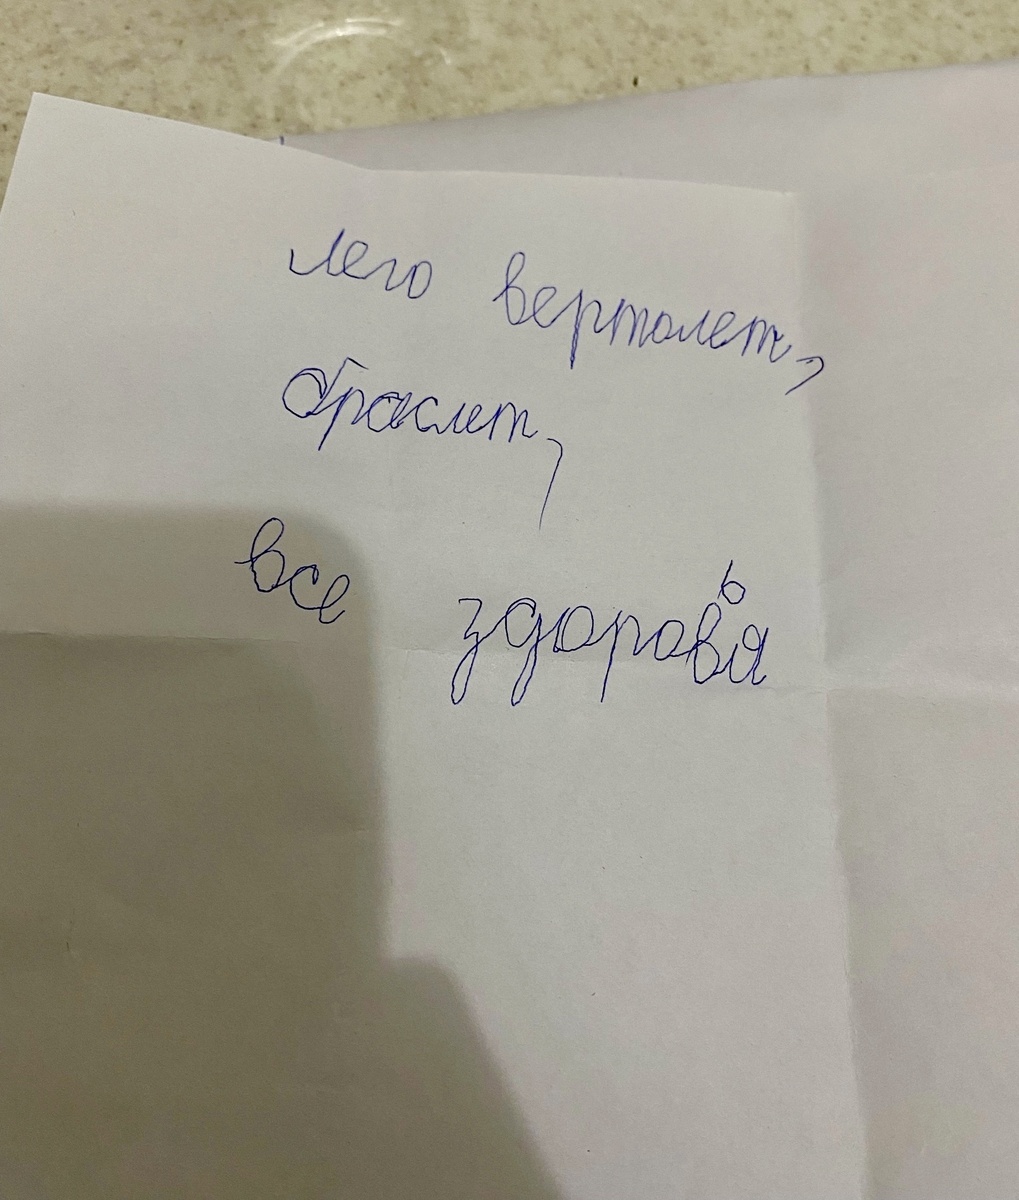 лего вертолет,
браслет,
все здоровья